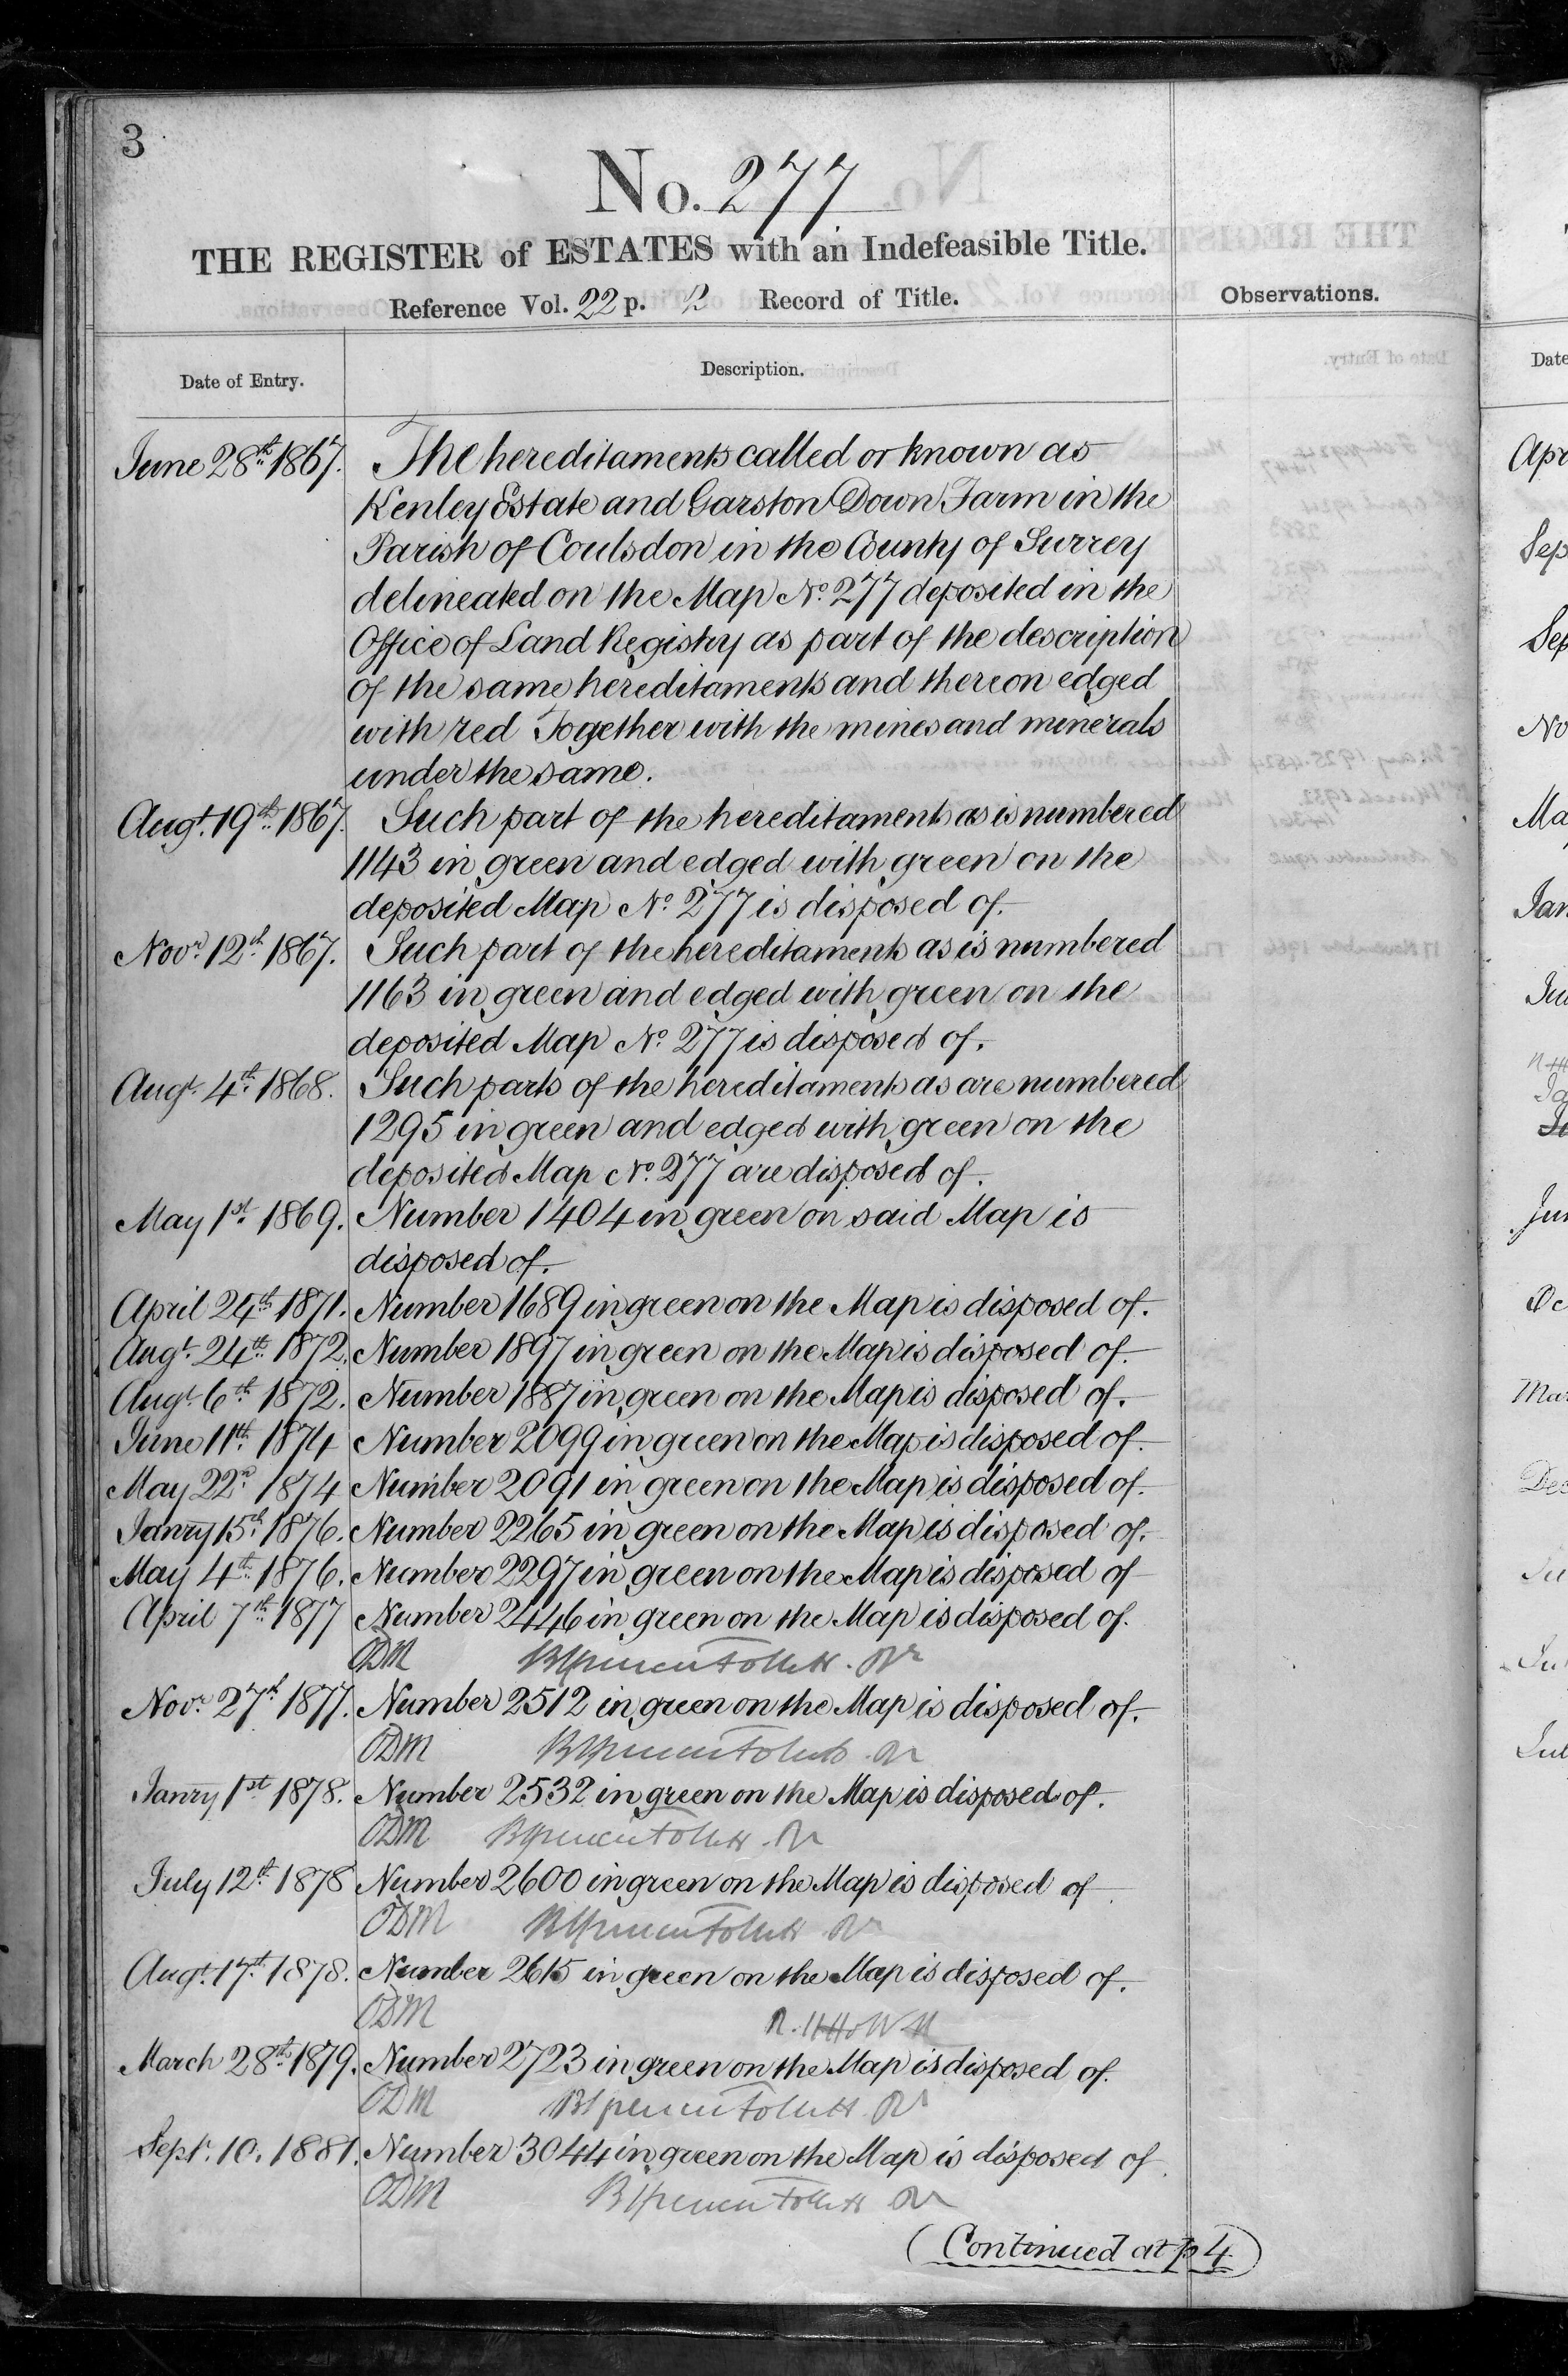 3
No. 277
THE REGISTER of ESTATES with an Indefeasible Title.
Reference Vol. 22 p. Record of Title.
Observations.
Date of Entry.
Description.
June 28th 1867. The hereditaments called or known as
Kenley Estate and Garston Down Farm in the
Parish of Coulsdon in the County of Surrey
delineated on the Map No. 277 deposited in the
Office of Land Registry as part of the description
of the same hereditaments and thereon edged
with red Together with the mines and minerals
under the same.
Augt. 19th 1867. Such part of the hereditaments as is numbered
1143 in green and edged with green on the
deposited Map No. 277 is disposed of.
Novr. 12th 1867. Such part of the hereditaments as is numbered
1163 in green and edged with green on the
deposited Map No. 277 is disposed of.
Augt. 4th 1868. Such parts of the hereditaments as are numbered
1295 in green and edged with green on the
deposited Map No. 277 are disposed of.
May 1st 1869. Number 1404 in green on said Map is
disposed of.
April 24th 1871. Number 1689 in green on the Map is disposed of.
Augt. 24th 1872. Number 1897 in green on the Map is disposed of.
Augt. 6th 1872. Number 1887 in green on the Map is disposed of.
June 11th 1874 Number 2099 in green on the Map is disposed of.
May 22d 1874 Number 2091 in green on the Map is disposed of.
Janry 15th 1876. Number 2265 in green on the Map is disposed of.
May 4th 1876. Number 2297 in green on the Map is disposed of
April 7th 1877 Number 2446 in green on the Map is disposed of.
ODM
Novr. 27th 1877. Number 2512 in green on the Map is disposed of.
ODM
Janry 1st 1878. Number 2532 in green on the Map is disposed of.
ODM
July 12th 1878 Number 2600 in green on the Map is disposed of
ODM
Augt. 17th 1878. Number 2615 in green on the Map is disposed of.
ODM
March 28th 1879. Number 2723 in green on the Map is disposed of.
ODM
Septr. 10. 1881. Number 3044 in green on the Map is disposed of.
ODM
(Continued at p 4)